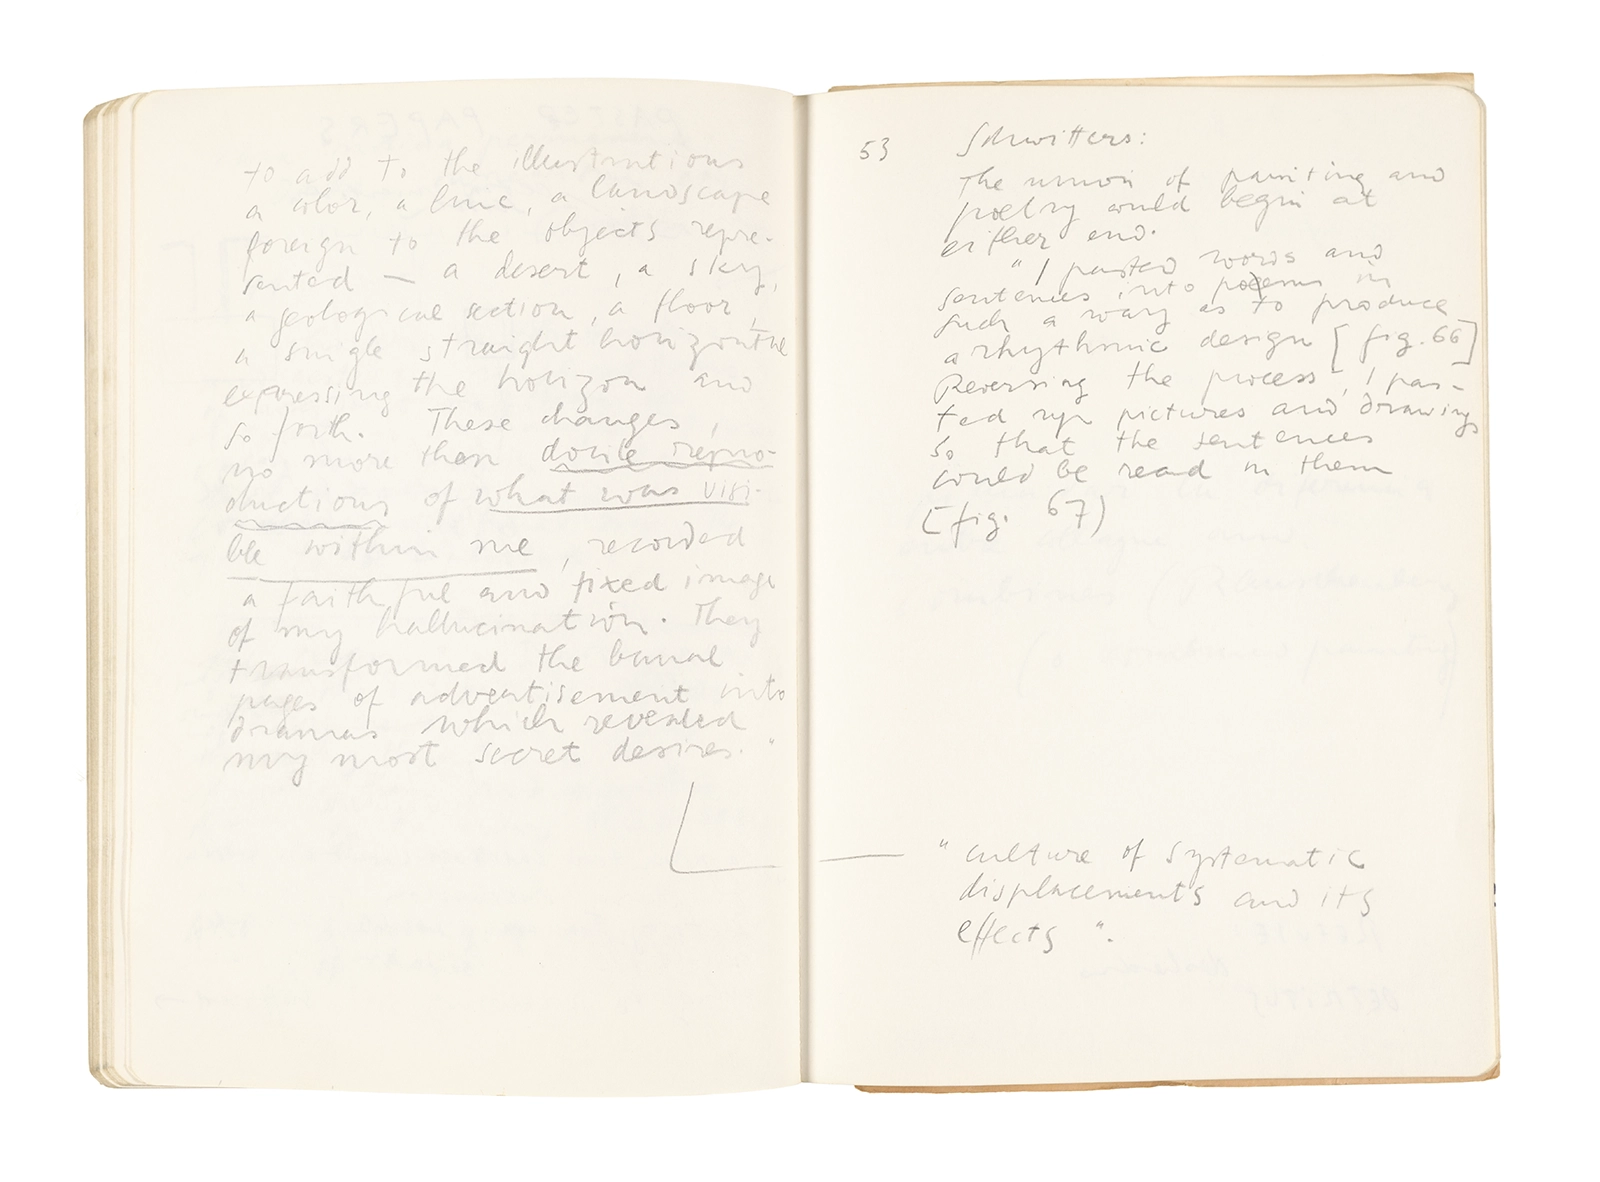 to add to the illustrations
a color, a line, a landscape
foreign to the objects repre-
sented — a desert, a sky,
a geological section, a floor,
a single straight horizontal
expressing the horizon and
so forth. These changes,
no more than docile repro-
ductions of what was visi-
ble within me, recorded
a faithful and fixed image
of my hallucination. They
transformed the banal
pages of advertisement into
dramas which revealed
my most secret desires."
53 Schwitters:
The union of painting and
poetry could begin at
either end.
"I pasted words and
sentences into poems in
such a way as to produce
a rhythmic design [fig. 66]
Reversing the process, I pas-
ted up pictures and drawings
so that the sentences
could be read in them
(fig. 67)
"culture of systematic
displacements and its
effects".
PASTED PAPERS
DETRITUS